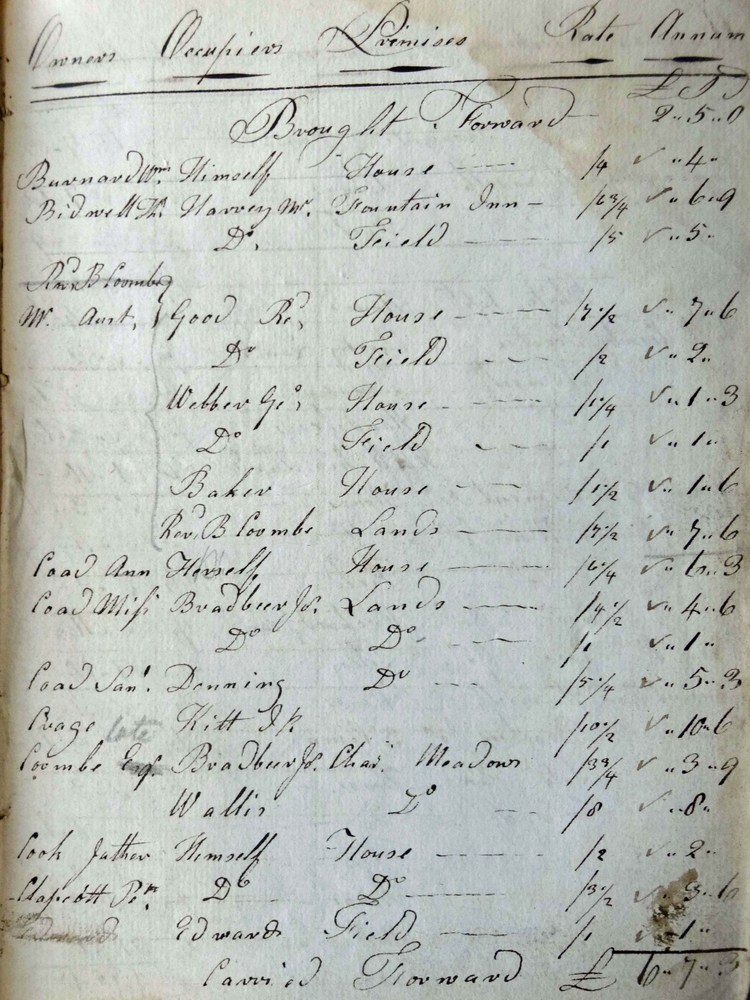 Owners Occupiers Premises Rate Annum
£ S d
Brought Forward 2 " 5 " 0
Burnard Wm. Himself House /4 " 4 "
Bidwell Th. Harvey Mr. Fountain Inn /6 3/4 " 6 " 9
Do. Field /5 " 5 "
Revd. B Coombe
Mr. Aust, Good Rd, House /7 1/2 " 7 " 6
Do Field /2 " 2 "
Webber Geo, House /1 1/4 " 1 " 3
Do Field /1 " 1 "
Baker House /1 1/2 " 1 " 6
Revd. B Coombe Lands /7 1/2 " 7 " 6
Coad Ann Herself House /6 1/4 " 6 " 3
Coad Miss Bradbeer Jo. Lands /4 1/2 " 4 " 6
Do Do /1 " 1 "
Coad Saml. Denning Do /5 1/4 " 5 " 3
Crage late Kitt /10 1/2 " 10 " 6
Coombe Esqr. Bradbeer Jo. Char. Meadows /3 3/4 " 3 " 9
Wallis Do /8 " 8 "
Cook Father Himself House /2 " 2 "
Clapcott Do Do /3 1/2 " 3 " 6
Edwards Field /1 " 1 "
Carried Forward £ 6 " 7 " 3